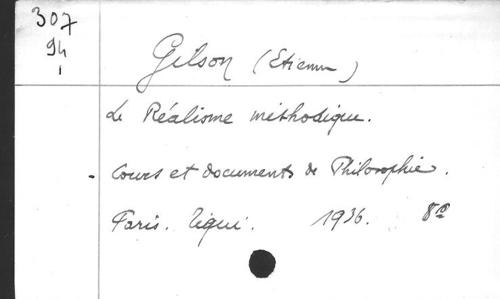 307
94
1
Gilson (Etienne)
Le Réalisme méthodique.
Cours et documents de Philosophie.
Paris. Téqui. 1936. 8º